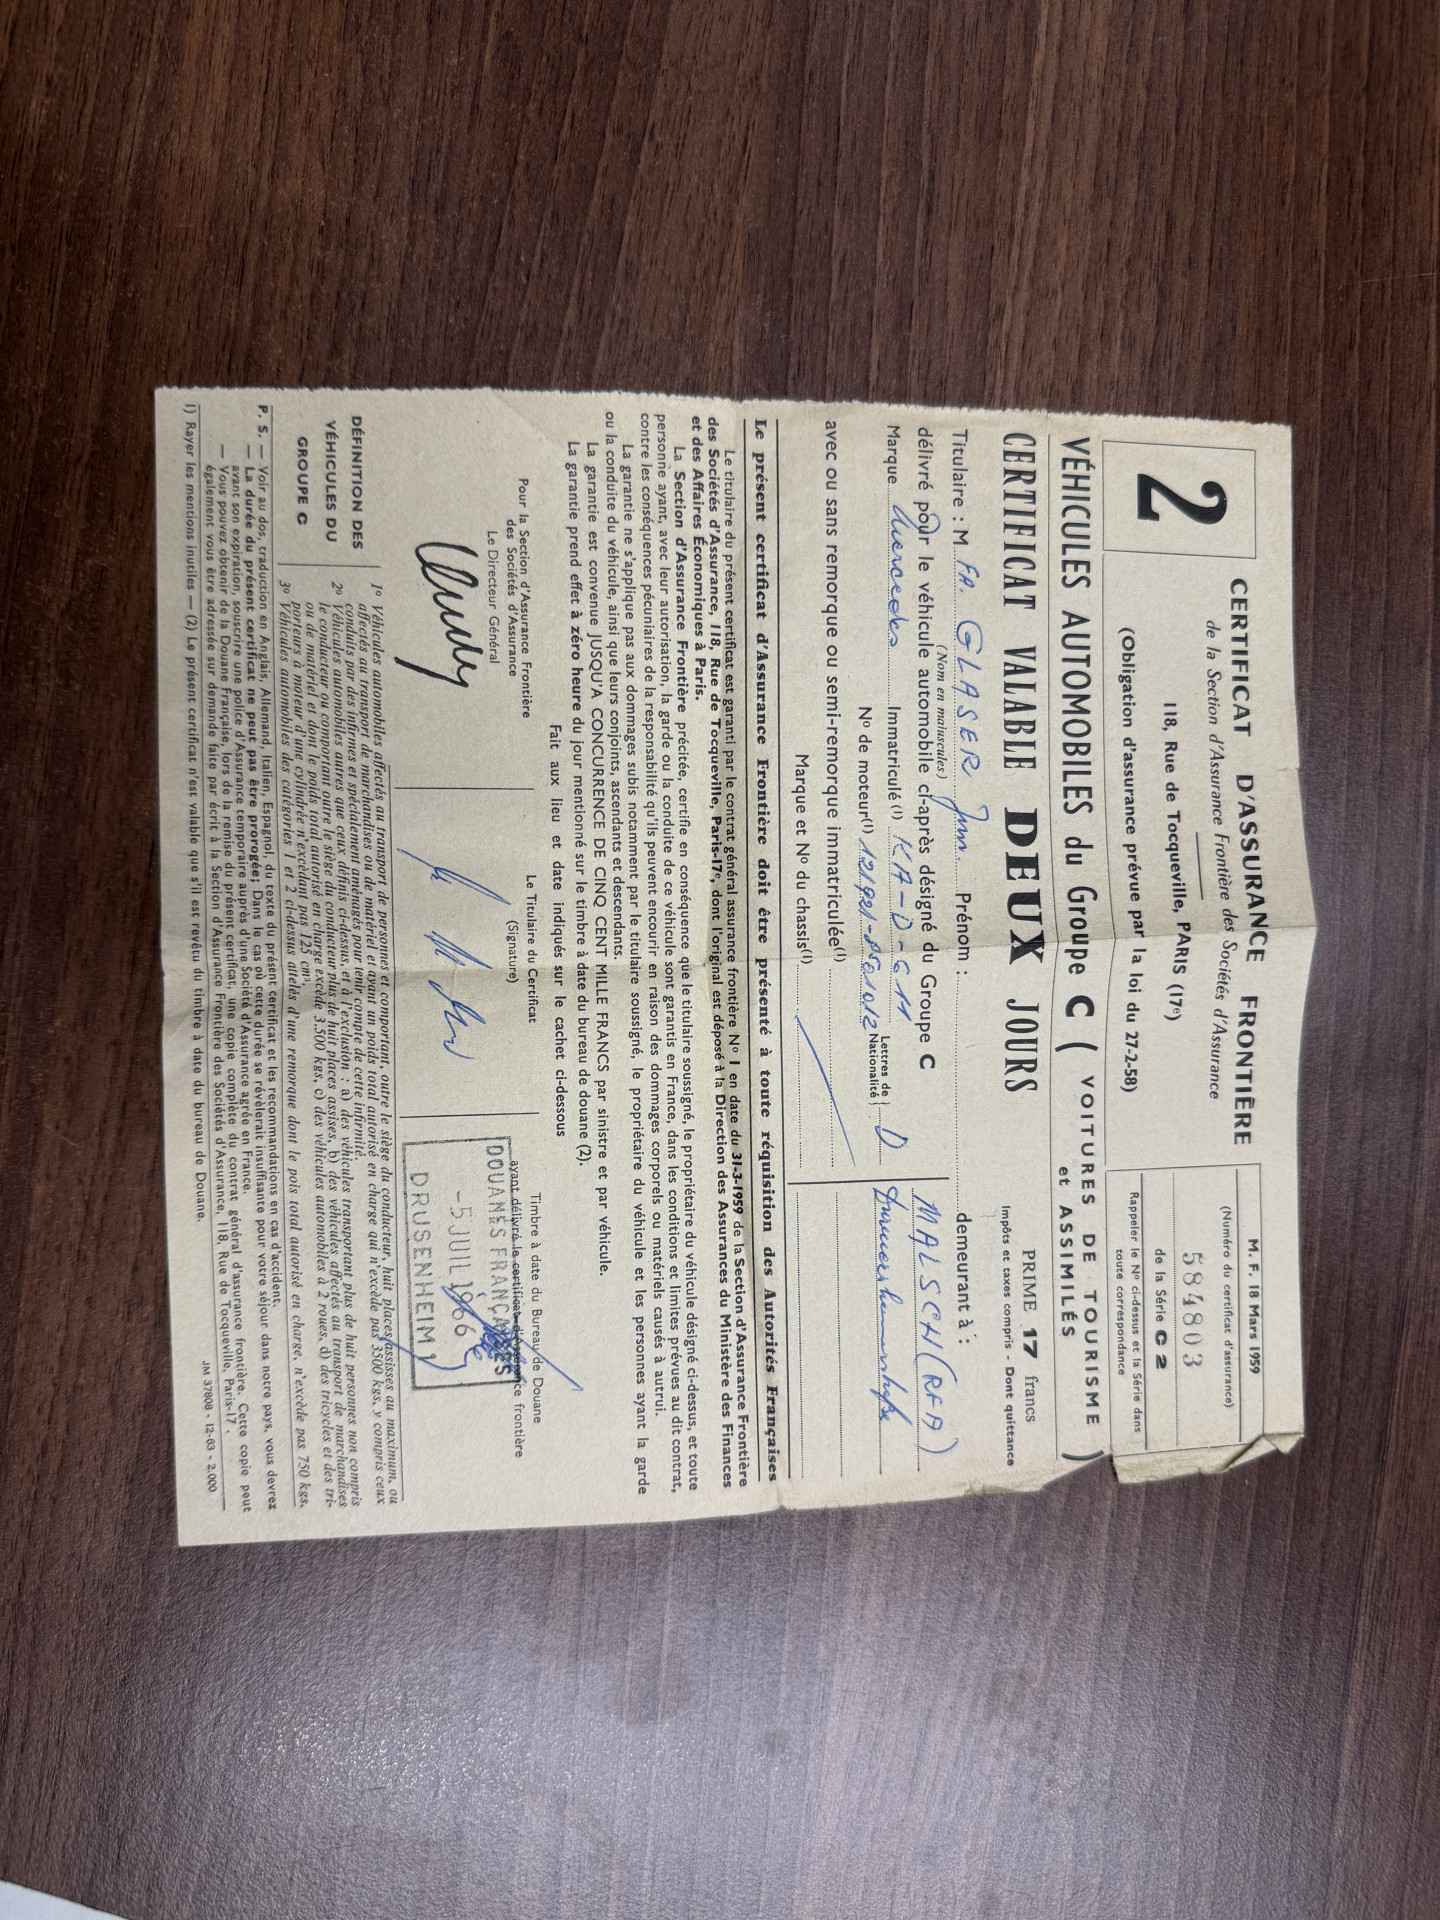 2
CERTIFICAT D'ASSURANCE FRONTIÈRE
de la Section d'Assurance Frontière des Sociétés d'Assurance
118, Rue de Tocqueville, PARIS (17e)
(Obligation d'assurance prévue par la loi du 27-2-58)
M. F. 18 Mars 1959
(Numéro du certificat d'assurance)
584803
de la Série C 2
Rappeler le No ci-dessus et la Série dans
toute correspondance
VÉHICULES AUTOMOBILES du Groupe C ( VOITURES DE TOURISME et ASSIMILÉS )
CERTIFICAT VALABLE DEUX JOURS
PRIME 17 francs
Impôts et taxes compris - Dont quittance
Titulaire : M FA. GLASER Jun. Prénom : demeurant à :
(Nom en majuscules)
délivré pour le véhicule automobile ci-après désigné du Groupe C
MALSCH (RFA)
Marque Mercedes Immatriculé(1) KA-D-611 Lettres de Nationalité } D
No de moteur(1)
avec ou sans remorque ou semi-remorque immatriculée(1)
Marque et No du chassis(1)
Le présent certificat d'Assurance Frontière doit être présenté à toute réquisition des Autorités Françaises
Le titulaire du présent certificat est garanti par le contrat général assurance frontière No 1 en date du 31-3-1959 de la Section d'Assurance Frontière
des Sociétés d'Assurance, 118, Rue de Tocqueville, Paris-17e, dont l'original est déposé à la Direction des Assurances du Ministère des Finances
et des Affaires Économiques à Paris.
La Section d'Assurance Frontière précitée, certifie en conséquence que le titulaire soussigné, le propriétaire du véhicule désigné ci-dessus, et toute
personne ayant, avec leur autorisation, la garde ou la conduite de ce véhicule sont garantis en France, dans les conditions et limites prévues au dit contrat,
contre les conséquences pécuniaires de la responsabilité qu'ils peuvent encourir en raison des dommages corporels ou matériels causés à autrui.
La garantie ne s'applique pas aux dommages subis notamment par le titulaire soussigné, le propriétaire du véhicule et les personnes ayant la garde
ou la conduite du véhicule, ainsi que leurs conjoints, ascendants et descendants.
La garantie est convenue JUSQU'A CONCURRENCE DE CINQ CENT MILLE FRANCS par sinistre et par véhicule.
La garantie prend effet à zéro heure du jour mentionné sur le timbre à date du bureau de douane (2).
Fait aux lieu et date indiqués sur le cachet ci-dessous
Pour la Section d'Assurance Frontière
des Sociétés d'Assurance
Le Directeur Général
Le Titulaire du Certificat
(Signature)
Timbre à date du Bureau de Douane
ayant délivré le certificat d'assurance frontière
DOUANES FRANÇAISES
-5 JUIL 1966
DRUSENHEIM 1
DÉFINITION DES
VÉHICULES DU
GROUPE C
1o Véhicules automobiles affectés au transport de personnes et comportant, outre le siège du conducteur, huit places assises au maximum, ou
affectés au transport de marchandises ou de matériel et ayant un poids total autorisé en charge qui n'excède pas 3500 kgs, y compris ceux
conduits par des infirmes et spécialement aménagés pour tenir compte de cette infirmité.
2o Véhicules automobiles autres que ceux définis ci-dessus, et à l'exclusion : a) des véhicules transportant plus de huit personnes non compris
le conducteur ou comportant outre le siège du conducteur plus de huit places assises, b) des véhicules affectés au transport de marchandises
ou de matériel et dont le poids total autorisé en charge excède 3.500 kgs, c) des véhicules automobiles à 2 roues, d) des tricycles et des tri-
porteurs à moteur d'une cylindrée n'excédant pas 125 cm3.
3o Véhicules automobiles des catégories 1 et 2 ci-dessus attelés d'une remorque dont le pois total autorisé en charge, n'excède pas 750 kgs.
P. S. — Voir au dos, traduction en Anglais, Allemand, Italien, Espagnol, du texte du présent certificat et les recommandations en cas d'accident.
— La durée du présent certificat ne peut pas être prorogée; Dans le cas où cette durée se révèlerait insuffisante pour votre séjour dans notre pays, vous devrez
avant son expiration, souscrire une police d'Assurance temporaire auprès d'une Société d'Assurance agréée en France.
— Vous pouvez obtenir de la Douane Française, lors de la remise du présent certificat, une copie complète du contrat général d'assurance frontière. Cette copie peut
également vous être adressée sur demande faite par écrit à la Section d'Assurance Frontière des Sociétés d'Assurance, 118, Rue de Tocqueville, Paris-17.
1) Rayer les mentions inutiles — (2) Le présent certificat n'est valable que s'il est revêtu du timbre à date du bureau de Douane.
JM 37008 - 12-63 - 2.000